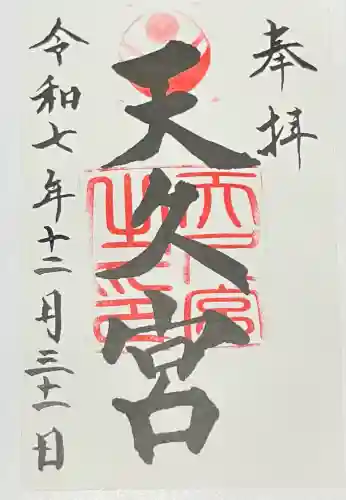 奉拝
天久宮
令和七年十二月三十一日